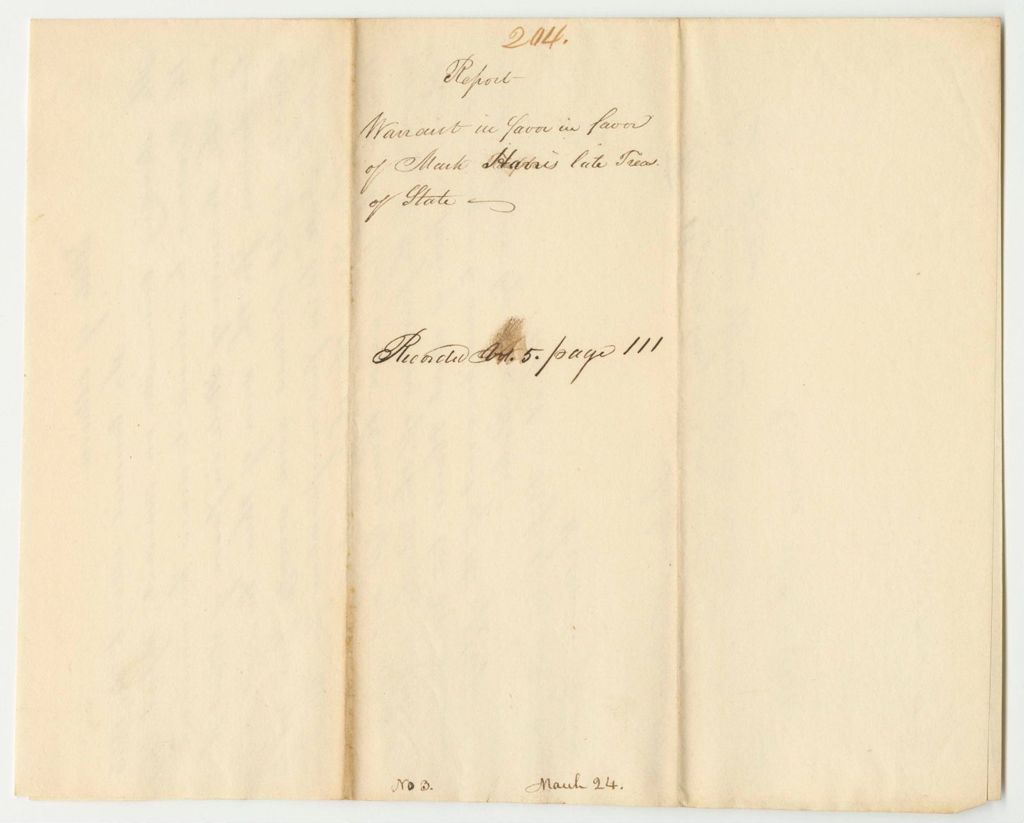 204.
Report
Warrant in favor in favor
of Mark Harris late Treas.
of State
Recorded Vol. 5. page 111
No 3. March 24.